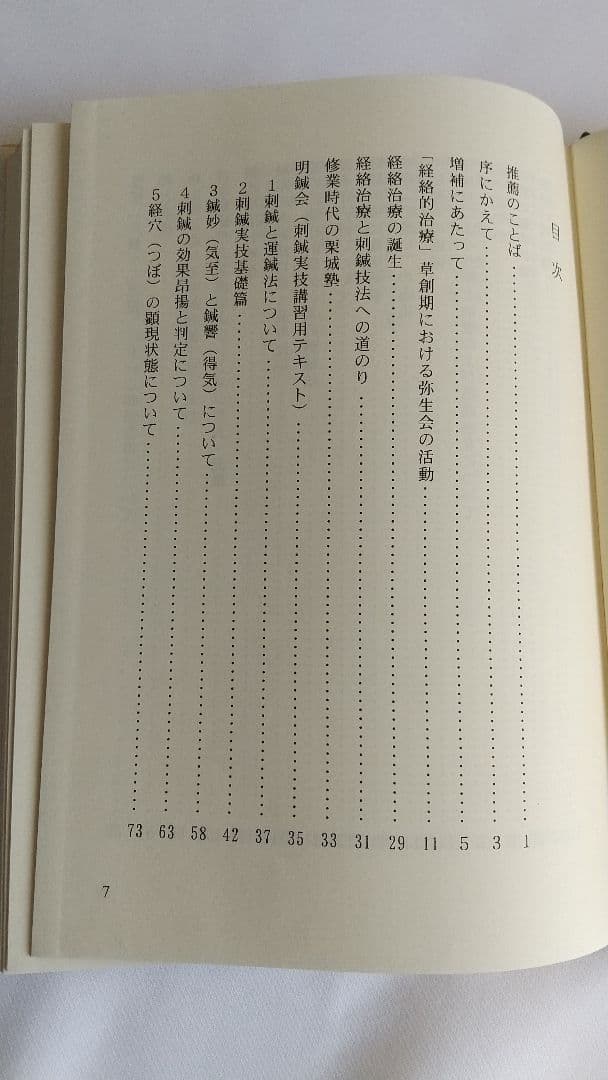 目次
推薦のことば……………………………………………1
序にかえて……………………………………………3
増補にあたって……………………………………………5
「経絡的治療」草創期における弥生会の活動……………………………………………11
経絡治療の誕生……………………………………………29
経絡治療と刺鍼技法への道のり……………………………………………31
修業時代の栗城塾……………………………………………33
明鍼会（刺鍼実技講習用テキスト）……………………………………………35
1刺鍼と運鍼法について……………………………………………37
2刺鍼実技基礎篇……………………………………………42
3鍼妙（気至）と鍼響（得気）について……………………………………………58
4刺鍼の効果昂揚と判定について……………………………………………63
5経穴（つぼ）の顕現状態について……………………………………………73
7